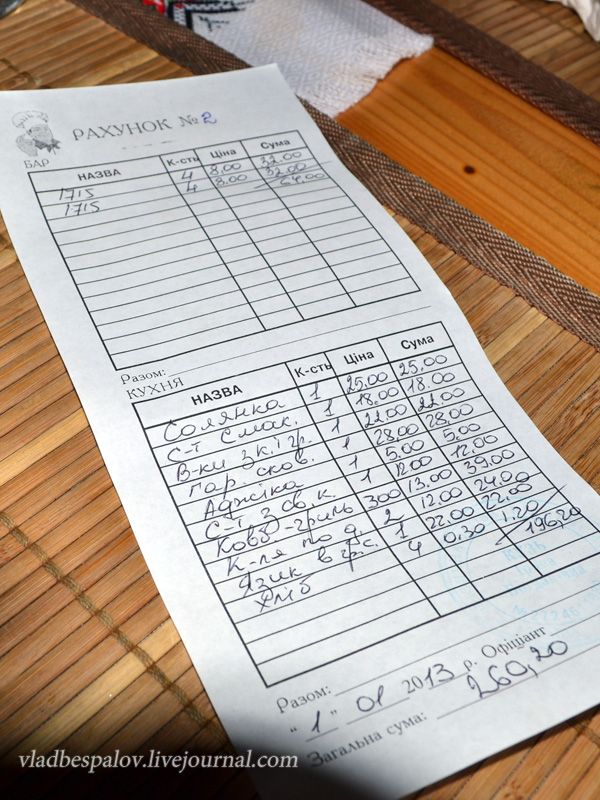 РАХУНОК № 2
БАР
НАЗВА К-сть Ціна Сума
1715 4 8.00 32.00
1715 4 8.00 32.00
64.00
Разом:
КУХНЯ
НАЗВА К-сть Ціна Сума
Солянка 1 25.00 25.00
С-т смак. 1 18.00 18.00
В-ки з к. і гр. 1 22.00 22.00
Гар. сков. 1 28.00 28.00
Аджіка 1 5.00 5.00
С-т з св. к. 1 12.00 12.00
Ковб-гриль 300 13.00 39.00
К-ля по д. 2 12.00 24.00
Язик в гр.с. 1 22.00 22.00
Хліб 4 0,30 1.20
196,20
Разом:
"1" 01 2013 р. Офіціант
Загальна сума: 260,20
vladbespalov.livejournal.com